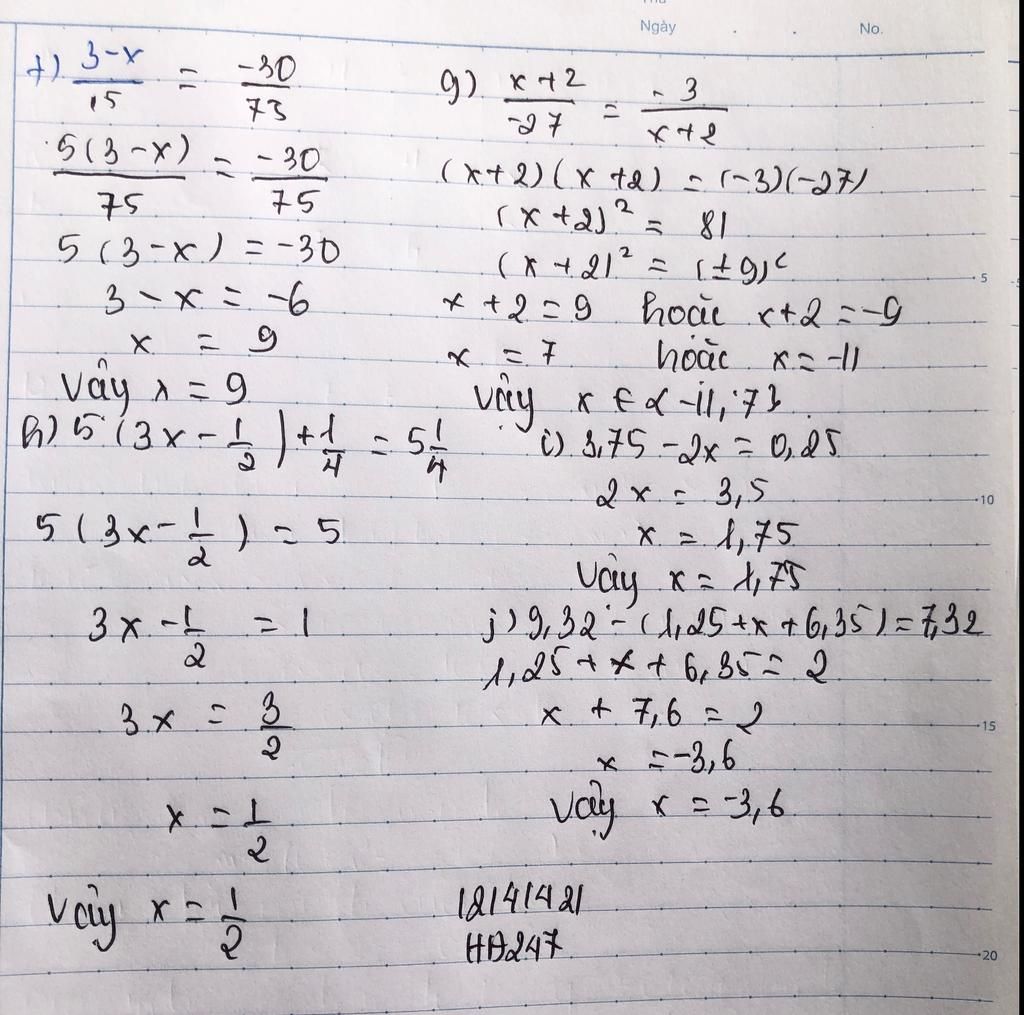 Thứ
Ngày No.
f) 3-x/15 = -30/73
5(3-x)/75 = -30/75
5(3-x) = -30
3-x = -6
x = 9
Vậy x = 9
h) 5(3x - 1/2) + 1/4 = 5 1/4
5(3x - 1/2) = 5
3x - 1/2 = 1
3x = 3/2
x = 1/2
Vậy x = 1/2
g) x+2/-27 = -3/x+2
(x+2)(x+2) = (-3)(-27)
(x+2)² = 81
(x+2)² = (±9)²
x+2 = 9 hoặc x+2 = -9
x = 7 hoặc x = -11
Vậy x ∈ {-11; 7}
i) 3,75 - 2x = 0,25
2x = 3,5
x = 1,75
Vậy x = 1,75
j) 9,32 - (1,25 + x + 6,35) = 7,32
1,25 + x + 6,35 = 2
x + 7,6 = 2
x = -3,6
Vậy x = -3,6
12141421
HD247
5
10
15
20